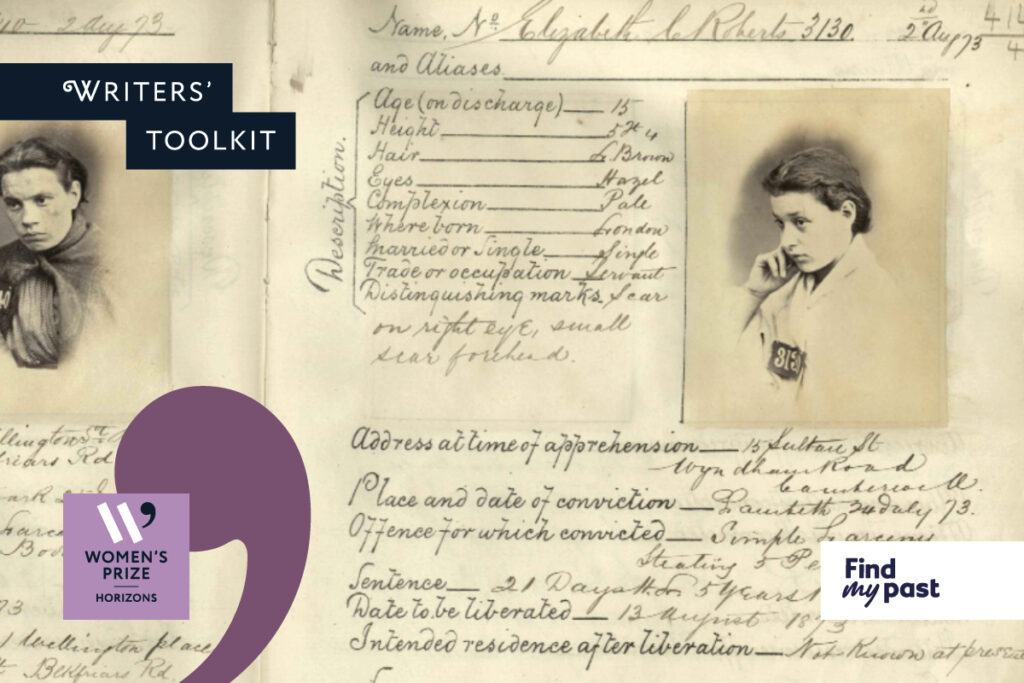 2 Aug 73
WRITERS'
TOOLKIT
Name, No. Elizabeth C Roberts 3130. 2nd Aug 73
and Aliases
Description.
Age (on discharge) 15
Height 5ft 4
Hair L. Brown
Eyes Hazel
Complexion Pale
Where born London
Married or Single Single
Trade or occupation Servant
Distinguishing marks. Scar
on right eye, small
scar forehead.
3130
Address at time of apprehension 15 Sultan St
Wyndham Road
Camberwell.
Place and date of conviction Lambeth 24 July 73.
Offence for which convicted Simple Larceny
Stealing 5
Sentence 21 Days 5 Years
Date to be liberated 13 August 1873
Intended residence after liberation Not Known at present
llington St
friars Rd
73
Wellington place
Blkfriars Rd.
WOMEN'S
PRIZE
HORIZONS
Find
my past